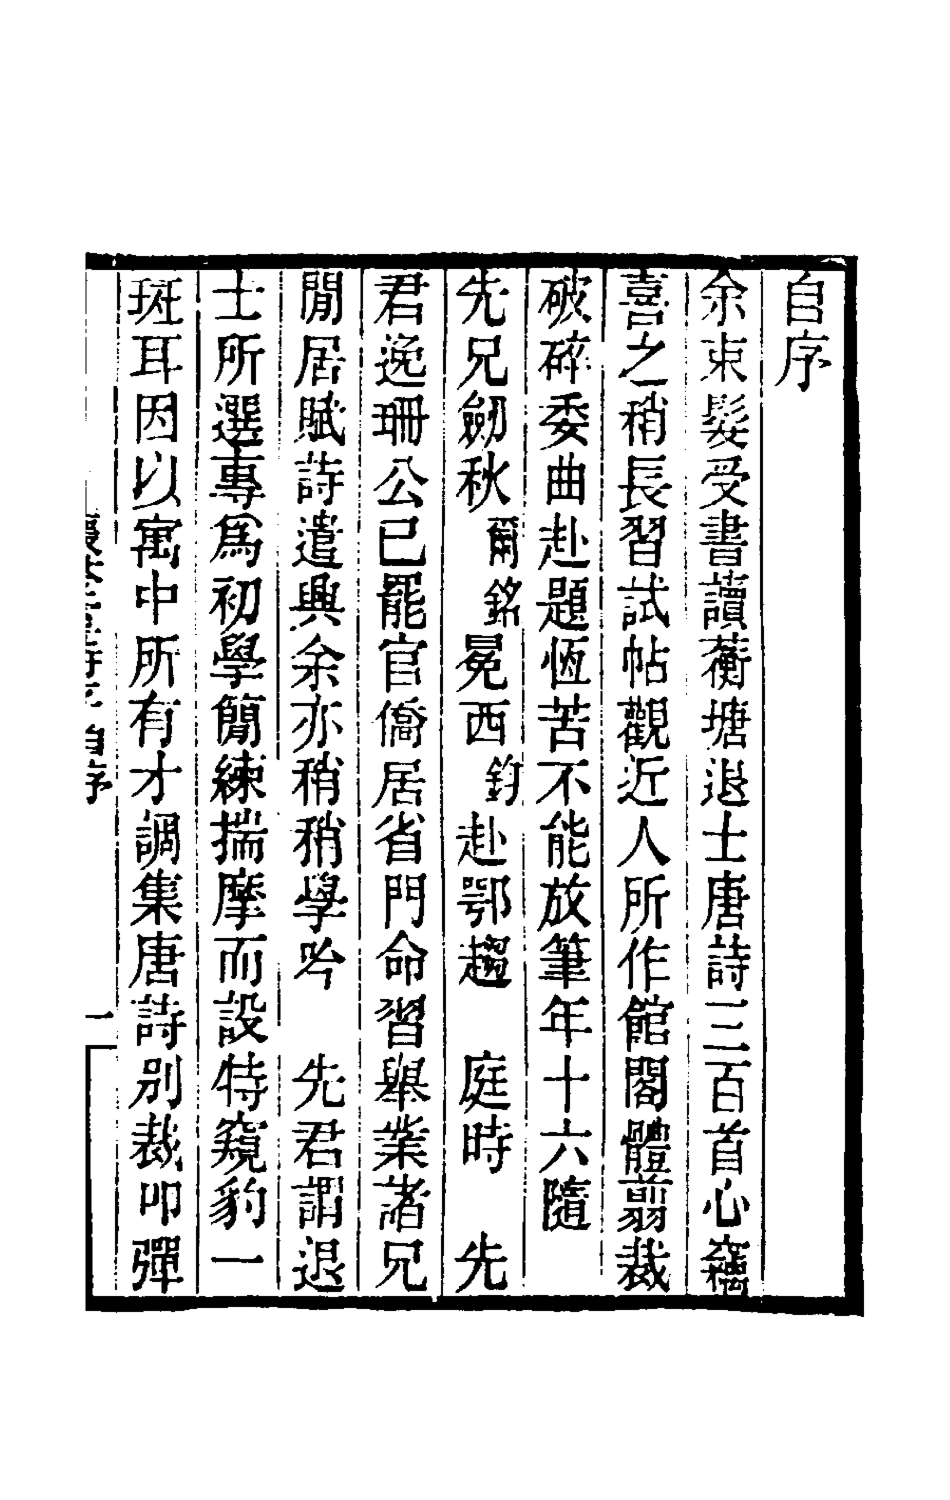 自序
余束髮受書讀蘅塘退士唐詩三百首心竊
喜之稍長習試帖觀近人所作館閣體翦裁
破碎委曲赴題恆苦不能放筆年十六隨
先兄劒秋爾銘冕西鈞赴鄂趨　庭時　先
君逸珊公已罷官僑居省門命習舉業諸兄
閒居賦詩遣興余亦稍稍學吟　先君謂退
士所選專爲初學簡練揣摩而設特窺豹一
斑耳因以寓中所有才調集唐詩別裁叩彈
自序
一